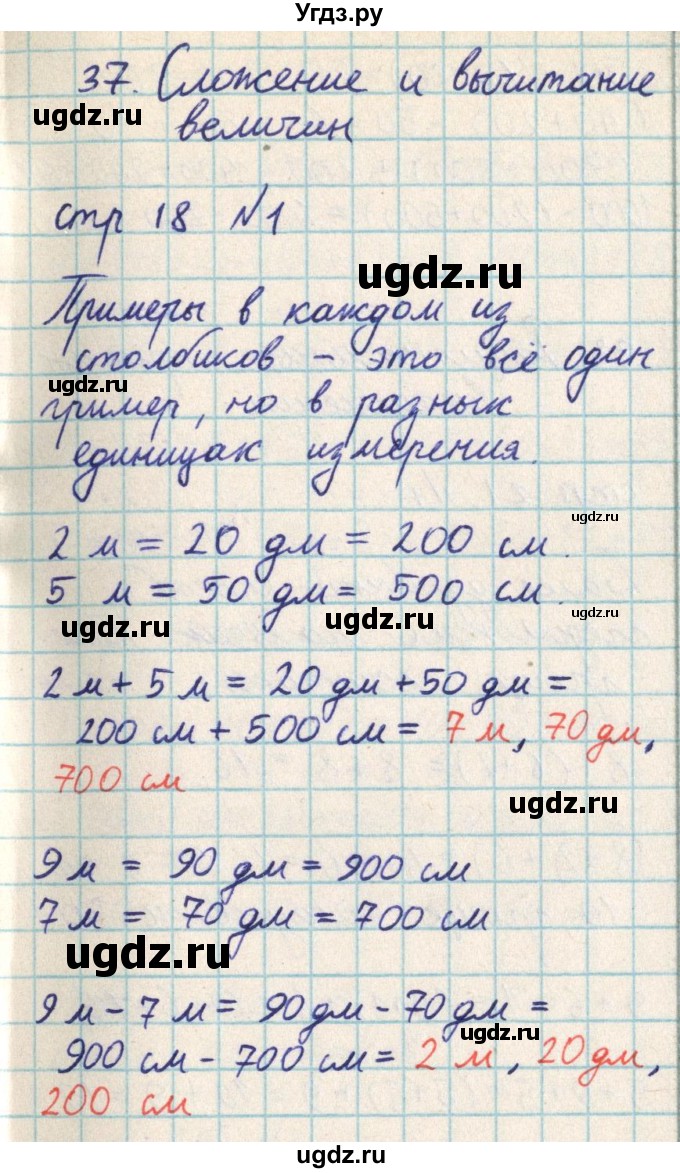 Угдз.ру
37. Сложение и вычитание
ugdz.ru
величин
стр 18 №1
ugdz.ru
Примеры в каждом из
столбиков – это всё один
ugdz.ru
пример, но в разных
единицах измерения.
ugdz.ru
2 м = 20 дм = 200 см.
5 м = 50 дм = 500 см.
ugdz.ru ugdz.ru ugdz.ru
2 м + 5 м = 20 дм + 50 дм =
200 см + 500 см = 7 м, 70 дм,
700 см
ugdz.ru
9 м = 90 дм = 900 см
7 м = 70 дм = 700 см
ugdz.ru
9 м – 7 м = 90 дм – 70 дм =
ugdz.ru
900 см – 700 см = 2 м, 20 дм,
200 см
ugdz.ru